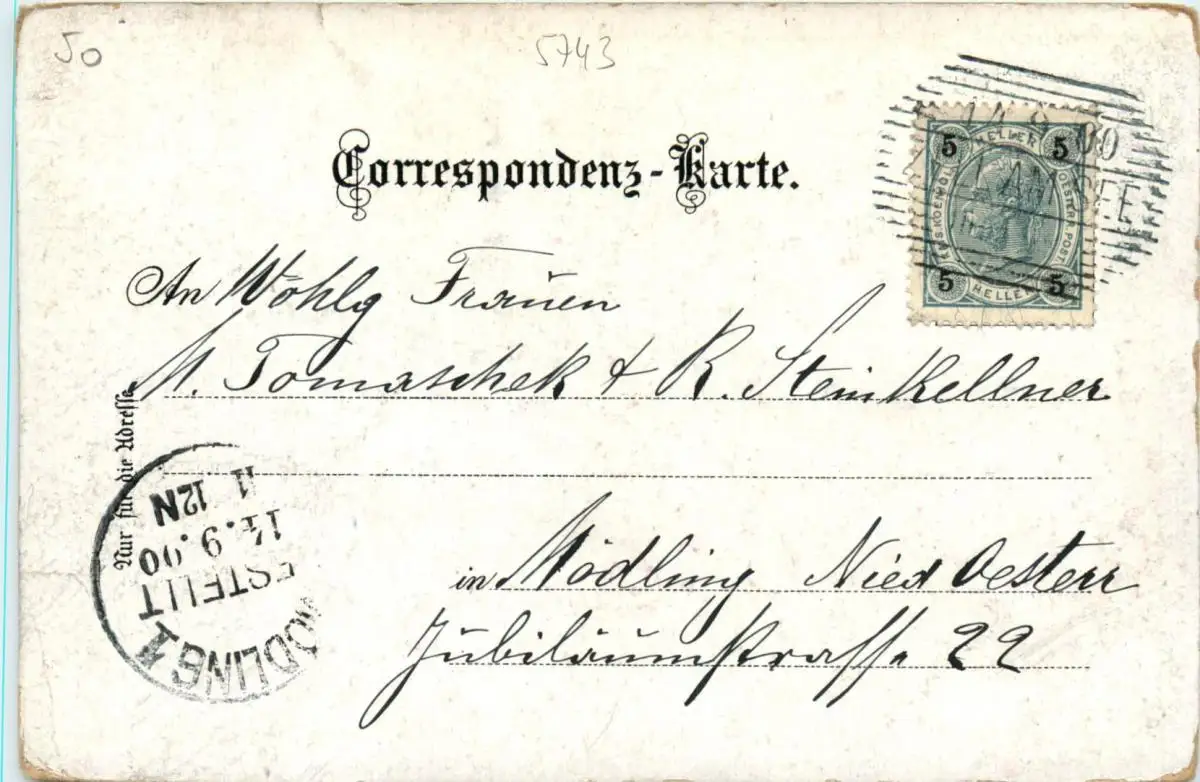 50
5743
Correspondenz-Karte.
5 HELLER 5
5 HELLER 5
An Wohlg Frauen
M. Tomaschek & R. Steinkellner
Nur für die Adresse
11 12N
14.9.00
BESTELLT
MÖDLING 1
in Mödling Nied Oesterr
Jubiläumstrasse 22